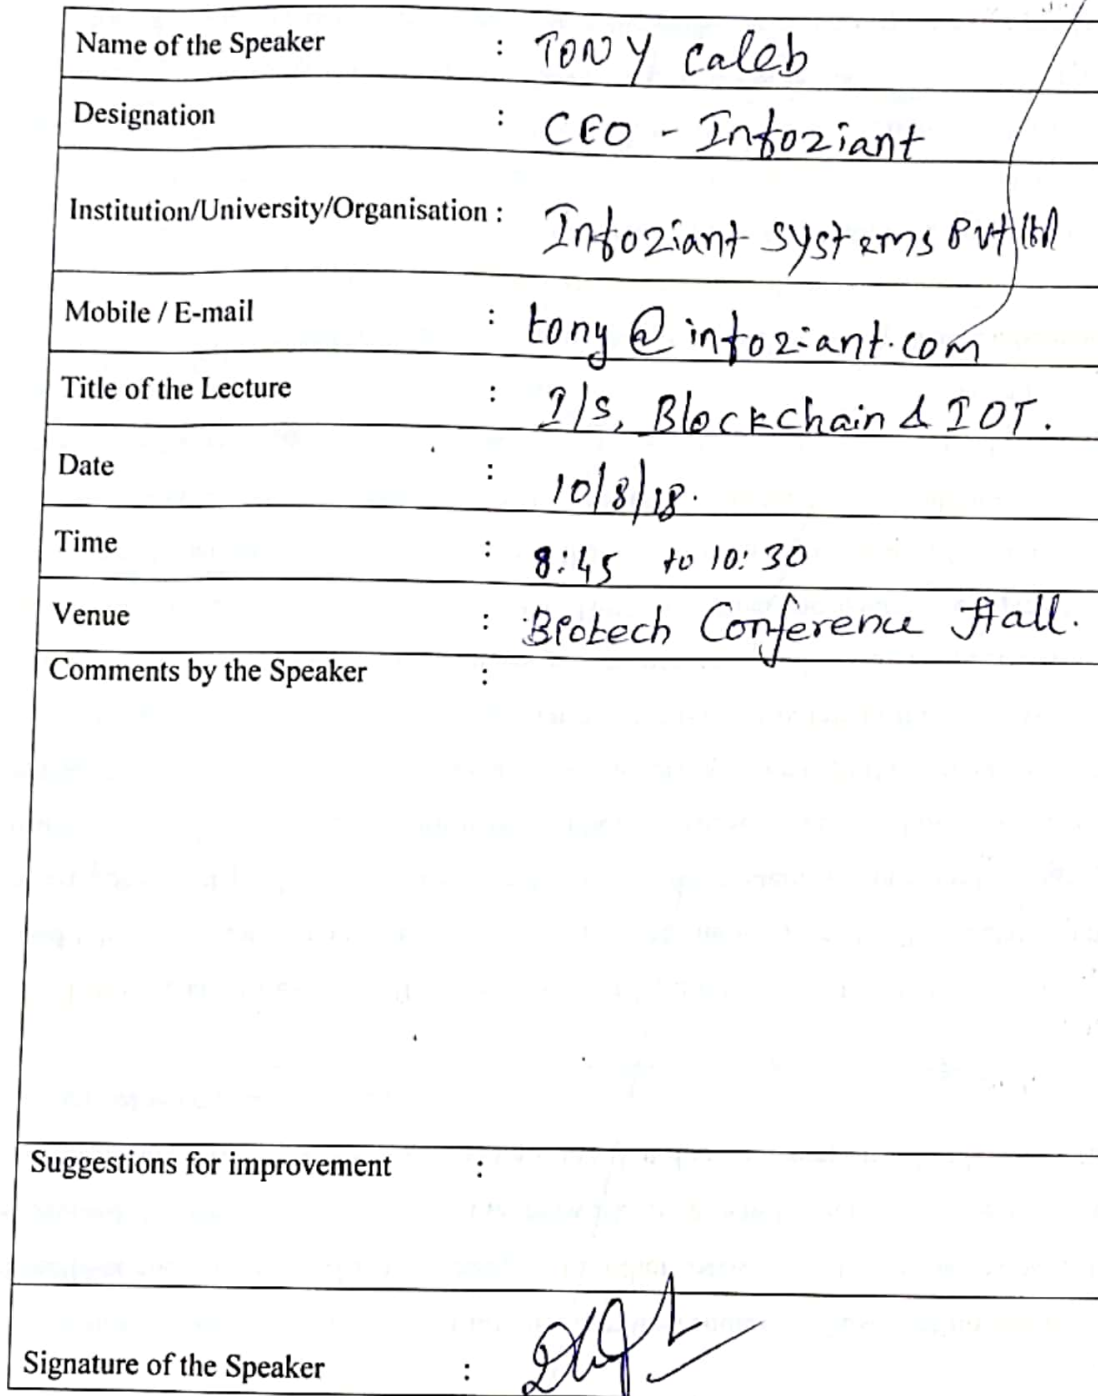 Name of the Speaker : TONY Caleb
Designation : CEO - Infoziant
Institution/University/Organisation : Infoziant systems Pvt ltd
Mobile / E-mail : tony@infoziant.com
Title of the Lecture : I/S, Blockchain & IOT.
Date : 10/8/18.
Time : 8:45 to 10:30
Venue : Biotech Conference Hall.
Comments by the Speaker :
Suggestions for improvement :
Signature of the Speaker :